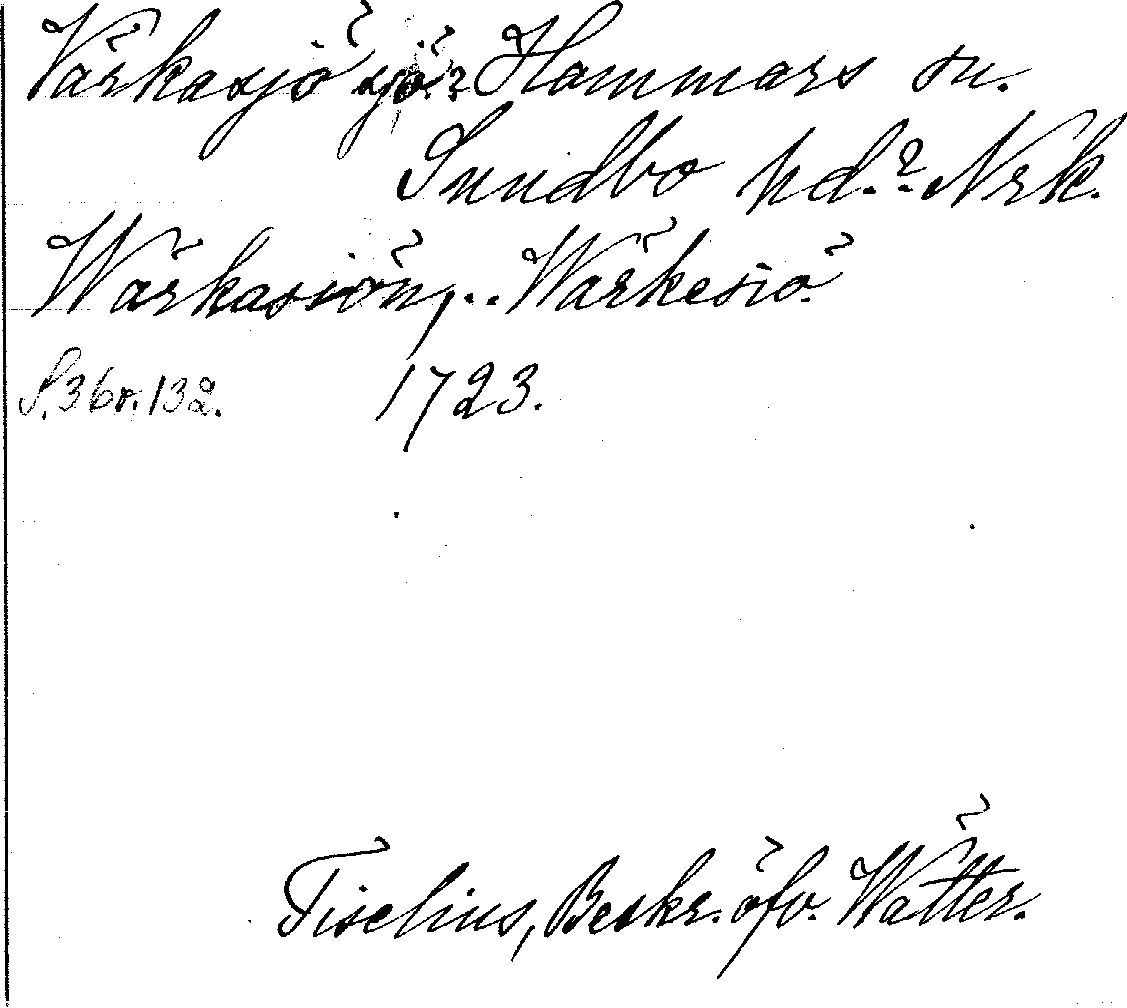 Värkasjö sjö? Hammars sn.
Sundbo hd.? Nrk.
Wärkasiön, .. Wärkesiö.
S. 36 o. 132. 1723.
Tiselius, Beskr. öfv. Wätter.